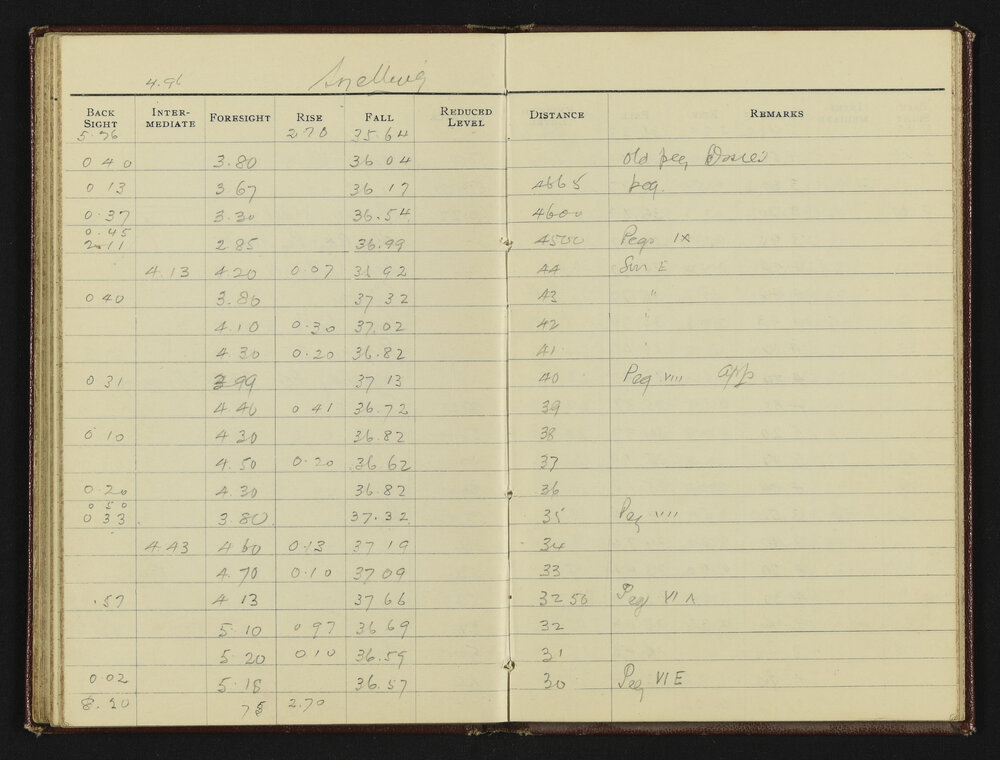 4.96 Snelling
BACK SIGHT INTER-MEDIATE FORESIGHT RISE FALL REDUCED LEVEL DISTANCE REMARKS
5.76 2.70 35.64
0 40 3.80 36 04 old peg
0 13 3.67 36 17 4665 peg.
0.37 3.30 36.54 4600
0.45
2.11 2.85 36.99 4500 Pegs IX
4.13 4.20 0.07 36 92 44 E
0 40 3.80 37 32 43 "
4.10 0.30 37.02 42 "
4.30 0.20 36.82 41
0 31 3.99 37 13 40 Peg VIII app
4.40 0 41 36.72 39
0 10 4 30 36.82 38
4.50 0.20 36.62 37
0.20 4.30 36.82 36
0 50
0 33 3.80 37.32 35 Peg VIII
4.43 4 60 0.13 37 19 34
4.70 0.10 37 09 33
.57 4 13 37 66 32 50 Peg VI A
5.10 0 97 36 69 32
5 20 0 10 36.59 31
0.02 5.18 36.57 30 Peg VI E
8.20 75 2.70